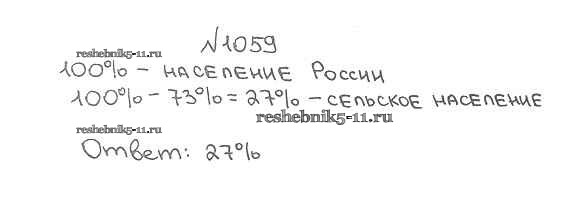 №1059
reshebnik5-11.ru
100% – НАСЕЛЕНИЕ РОССИИ
100% – 73% = 27% – СЕЛЬСКОЕ НАСЕЛЕНИЕ
reshebnik5-11.ru
reshebnik5-11.ru
Ответ: 27%